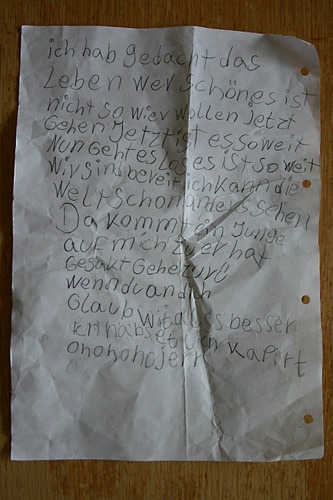 ich hab gedacht das
Leben wer schönes ist
nicht so wier wollen jetzt
Gehen Jetzt ist es soweit
Nun Geht es Los es ist so weit
Wir sind bereit ich kann die
Welt schon anders sehen
Da kommt ein Junge
auf mich zu er hat
Gesakt Gehe zurü
wenn du an dich
Glaub wird besser
Ich hab es kaport
ohohoho